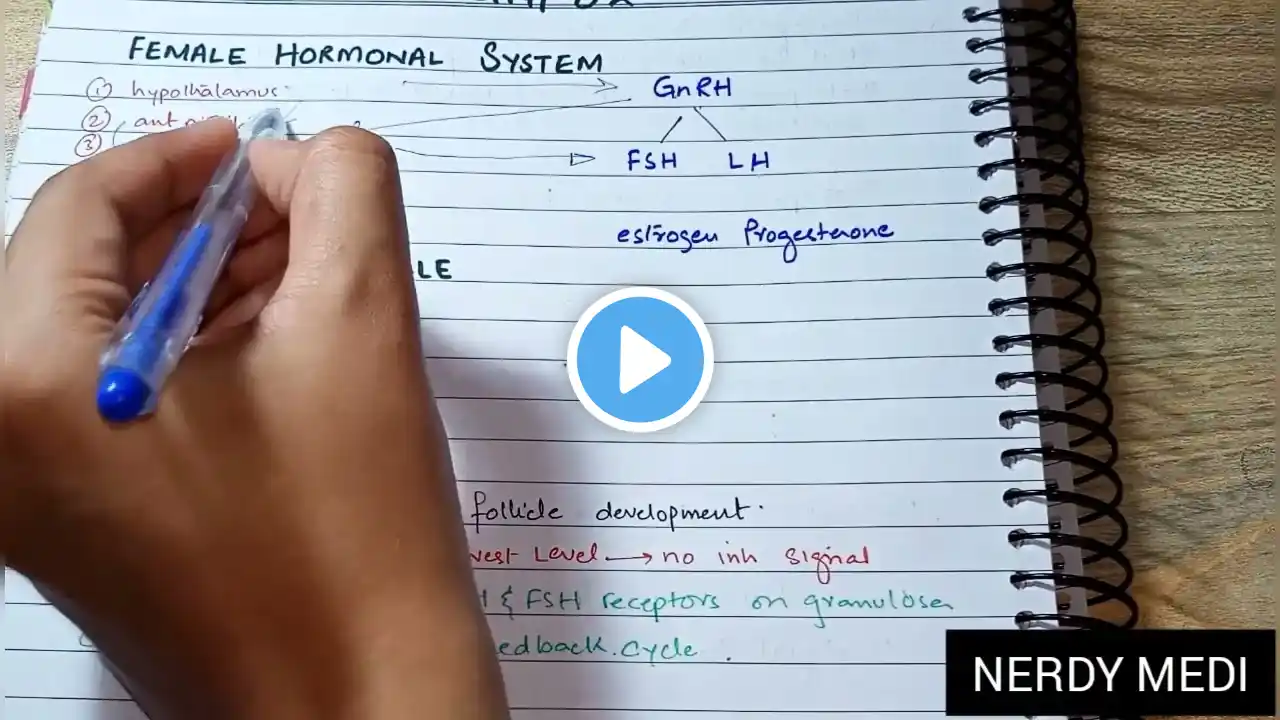 FEMALE HORMONAL SYSTEM
① hypothalamus
GnRH
② ant
③
FSH LH
estrogen Progesterone
LE
follicle development.
west Level → no inh signal
H & FSH receptors on granulosa
edback cycle.
NERDY MEDI